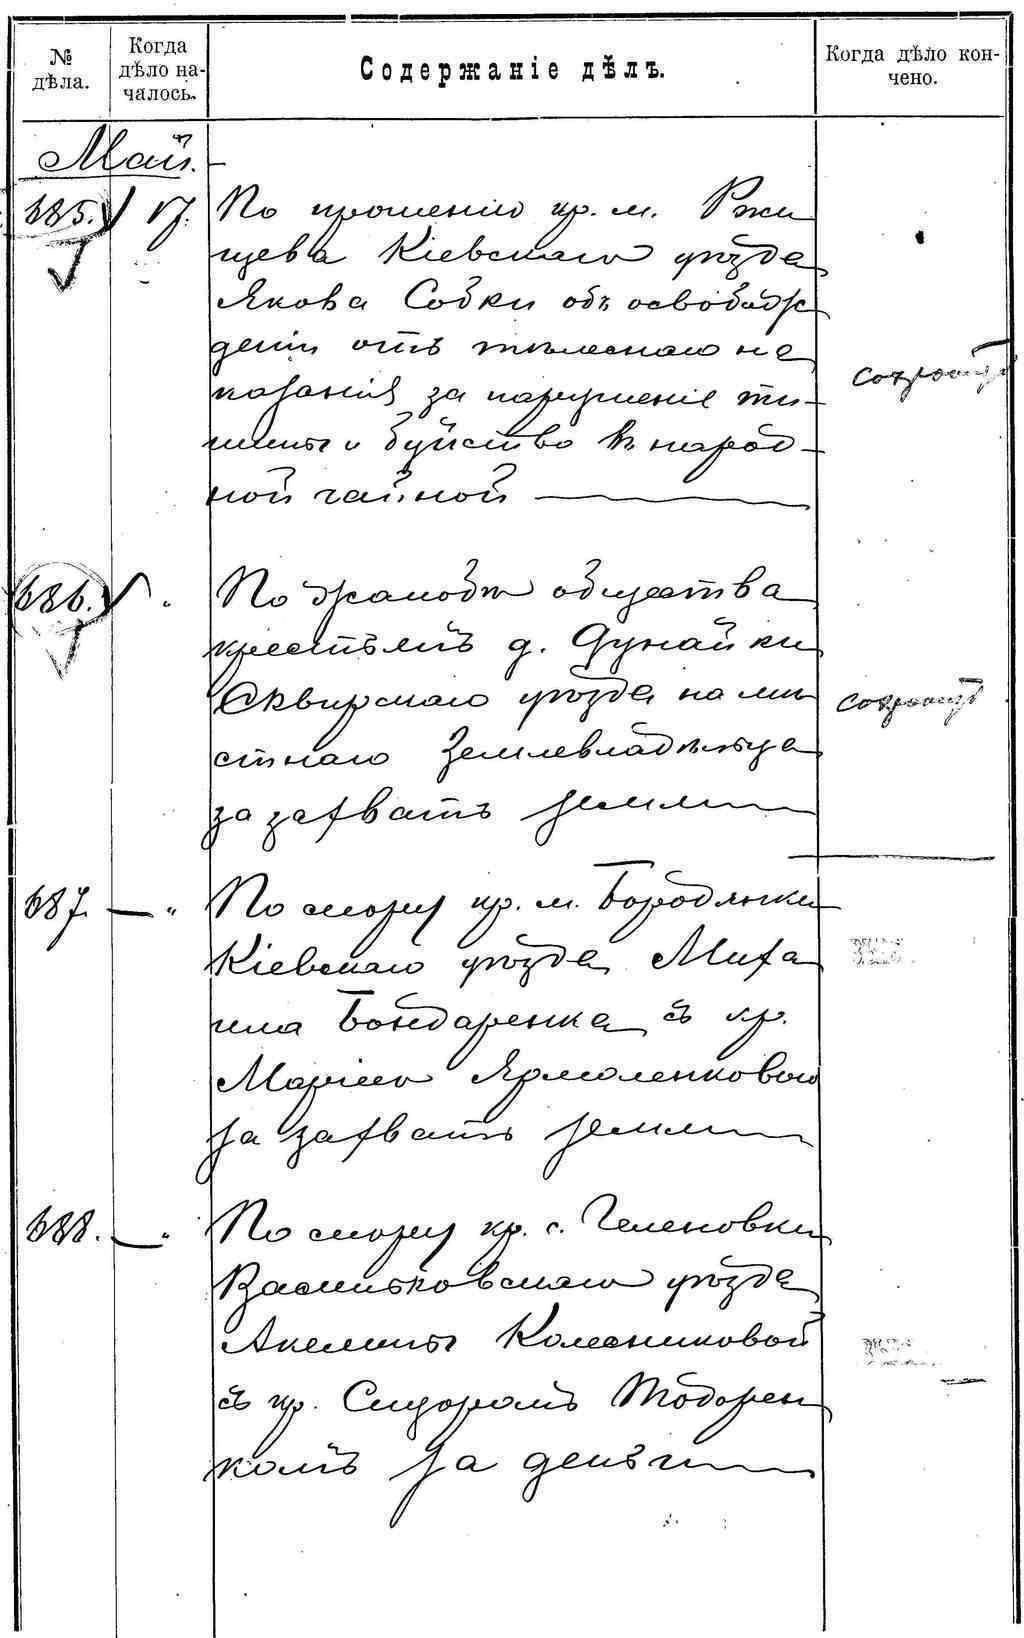 № дѣла.
Когда дѣло на-
чалось.
Содержаніе дѣлъ.
Когда дѣло кон-
чено.
Май.
685. 17. По прошенію кр. м. Ржи
щева Кіевскаго уѣзда
Якова Собки объ освобожд
деніи отъ тѣлеснаго на
казанія за нарушеніе ти-
шины и буйство въ народ-
ной чайной
686. " По жалобѣ общества
крестьянъ д. Дунайки
Сквирскаго уѣзда на мѣ
стнаго землевладѣльца
за захватъ земли
687. — " По спору кр. м. Бородянки
Кіевскаго уѣзда Миха
ила Бондаренка съ кр.
Маріею Ярмоленковою
за захватъ земли
688. — " По спору кр. с. Теленовки
Васильковскаго уѣзда
Акелины Колесниковой
съ кр. Сидоромъ Тодорен
комъ за деньги